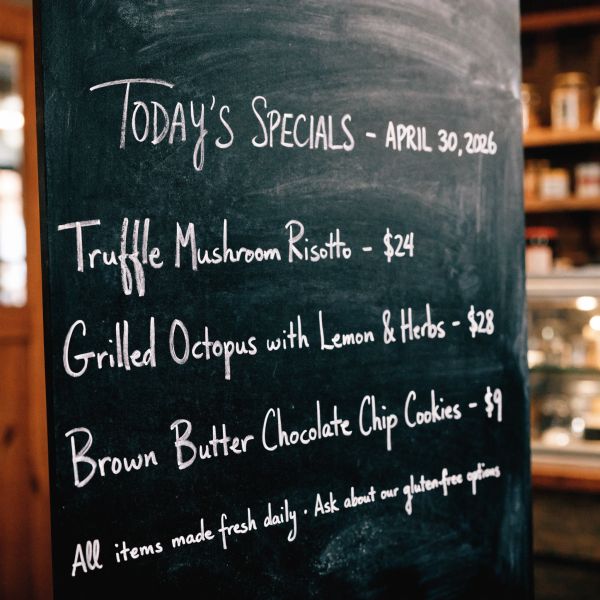 Today's Specials - April 30, 2026
Truffle Mushroom Risotto - $24
Grilled Octopus with Lemon & Herbs - $28
Brown Butter Chocolate Chip Cookies - $9
All items made fresh daily · Ask about our gluten-free options